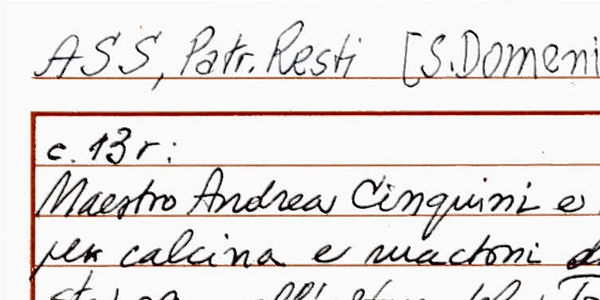 ASS, Patr. Resti [S. Domeni
c. 13 r:
Maestro Andrea Cinquini e
per calcina e mactoni